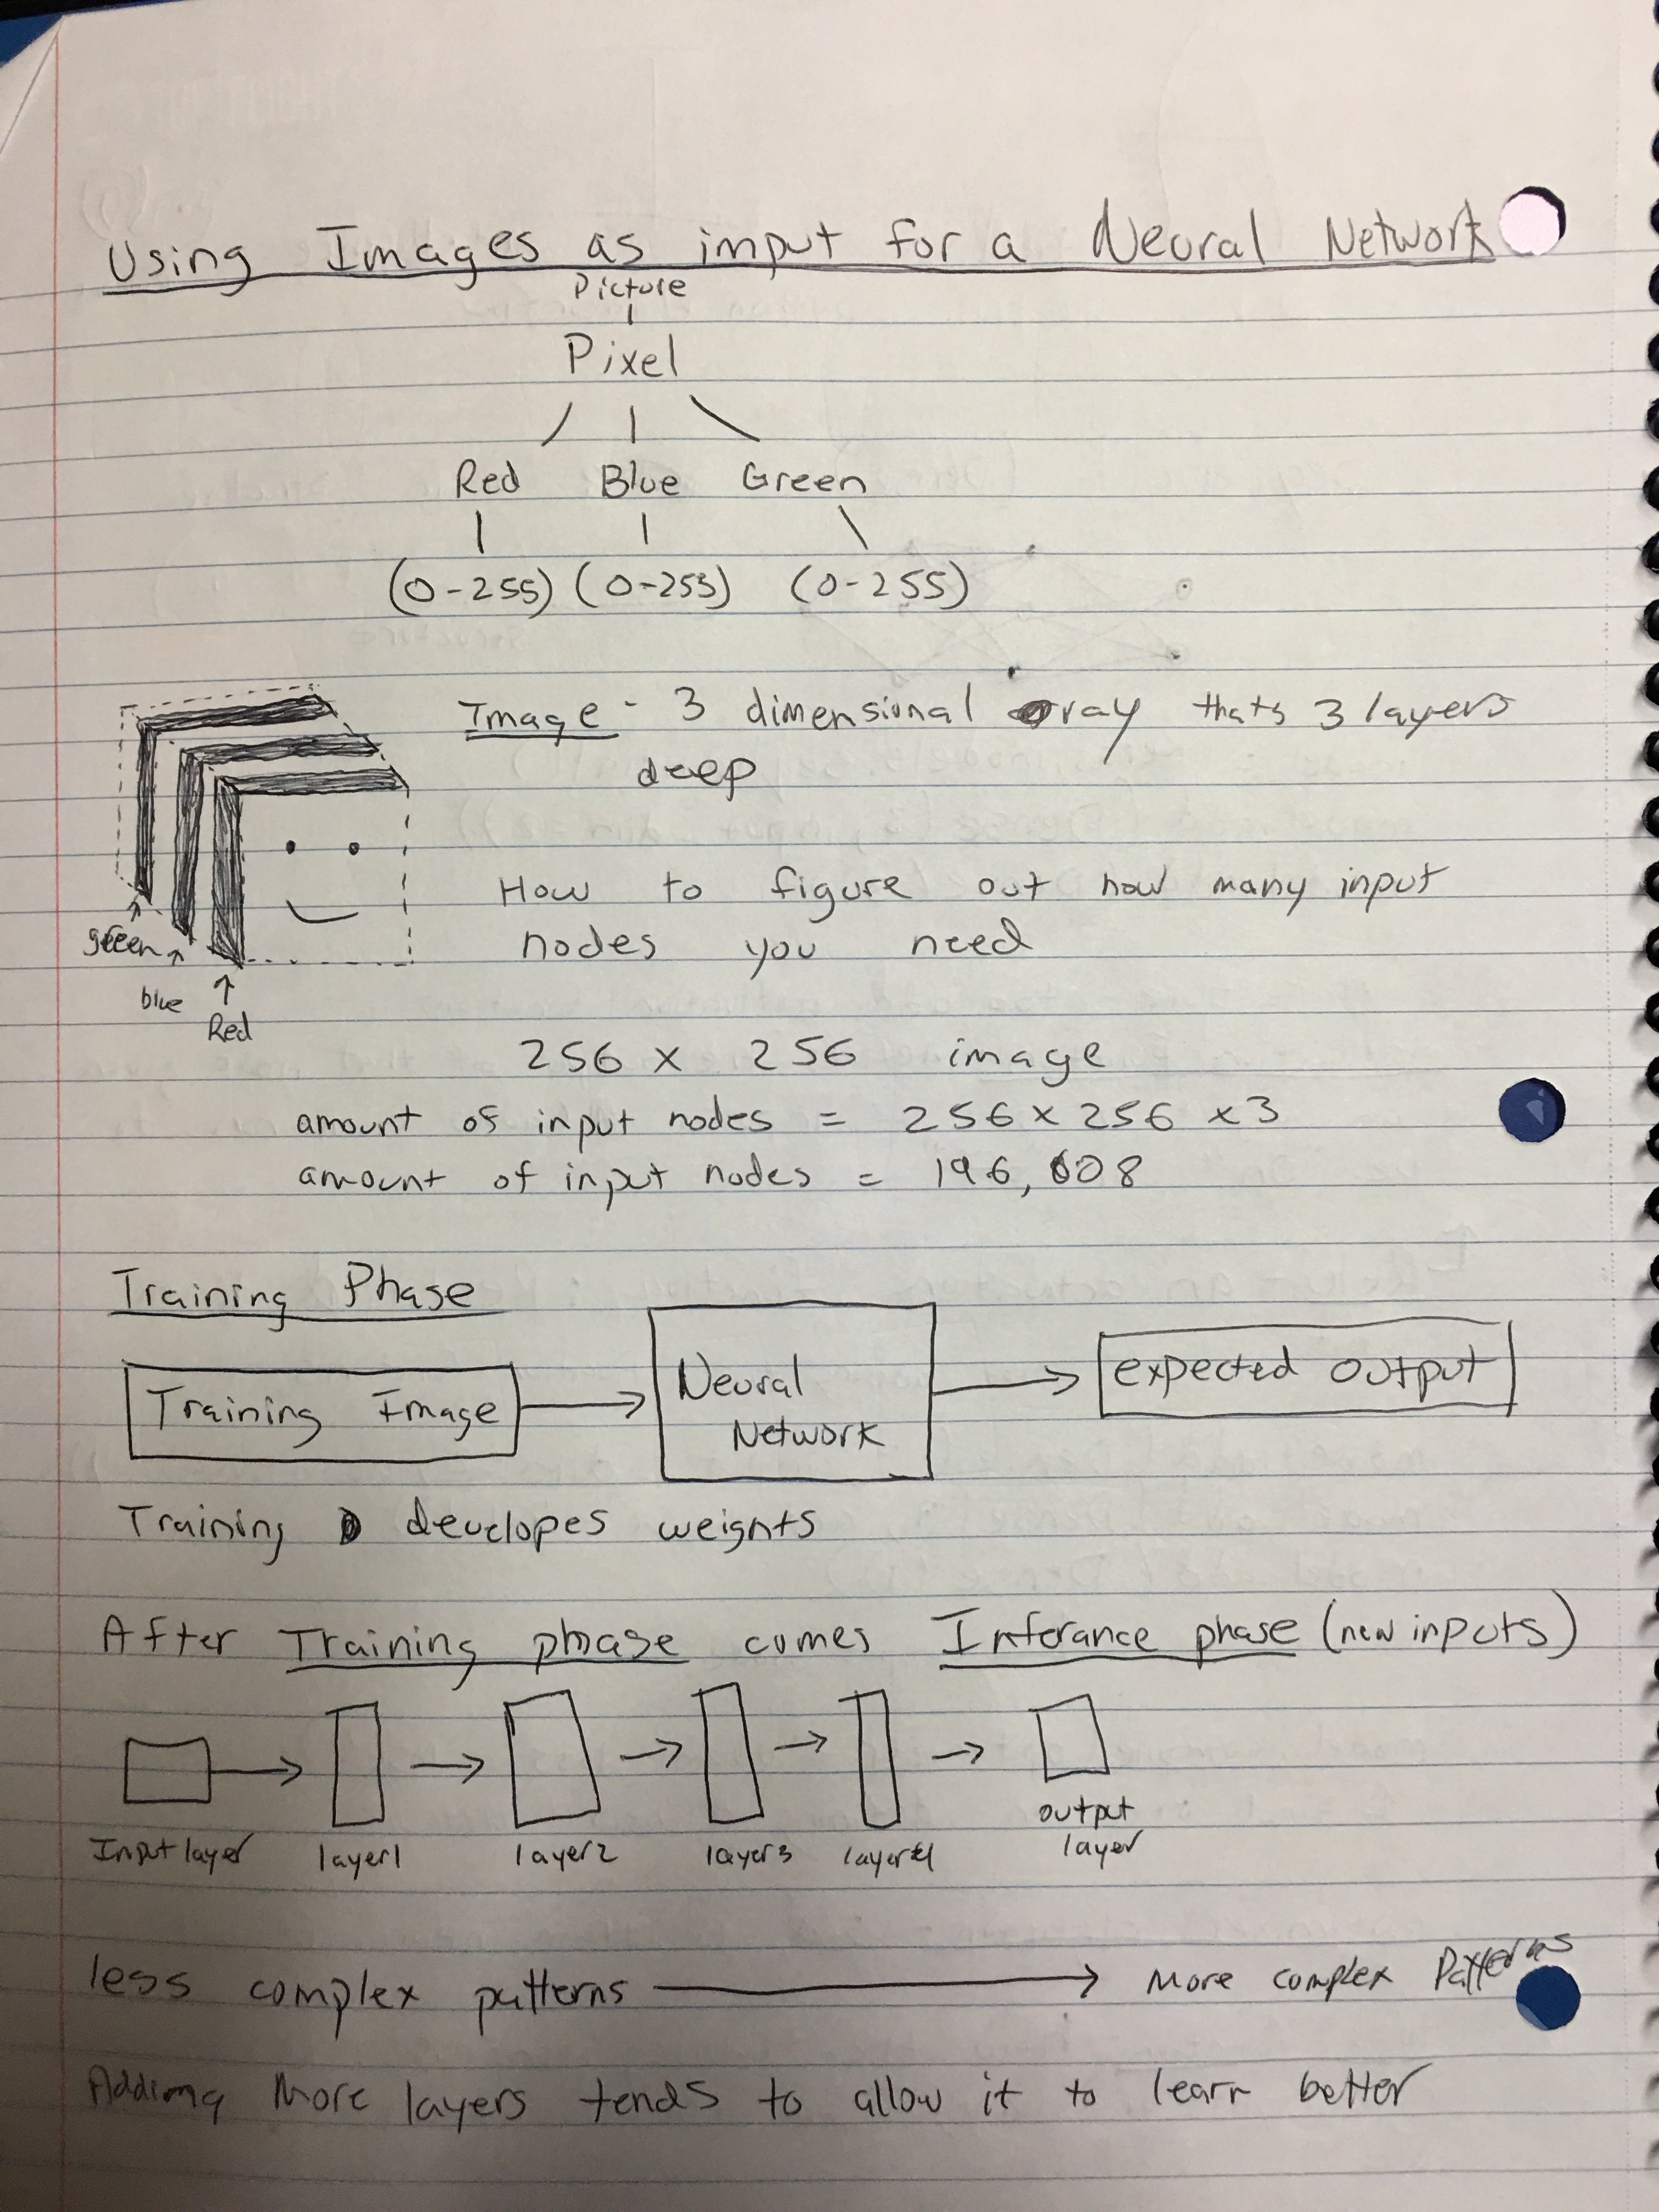 Using Images as input for a Neural Network
Picture
Pixel
Red Blue Green
(0-255) (0-255) (0-255)
Image - 3 dimensional array thats 3 layers
deep
How to figure out how many input
nodes you need
green
blue
Red
256 x 256 image
amount of input nodes = 256 x 256 x 3
amount of input nodes = 196,608
Training Phase
Training Image
Neural
Network
expected output
Training developes weights
After Training phase comes Inferance phase (new inputs)
Input layer layer1 layer2 layer3 layer4 output
layer
less complex patterns → More complex Patterns
Adding More layers tends to allow it to learn better